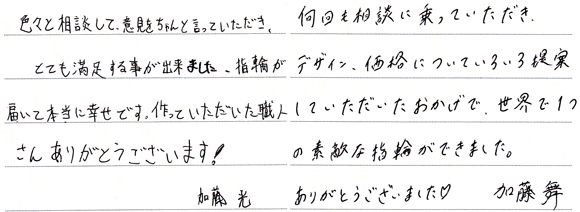 色々と相談して、意見をちゃんと言っていただき、
とても満足する事が出来ました。指輪が
届いて本当に幸せです。作っていただいた職人
さんありがとうございます!
加藤 光
何回も相談に乗っていただき、
デザイン、価格についていろいろ提案
していただいたおかげで、世界で1つ
の素敵な指輪ができました。
ありがとうございました♡ 加藤 舞